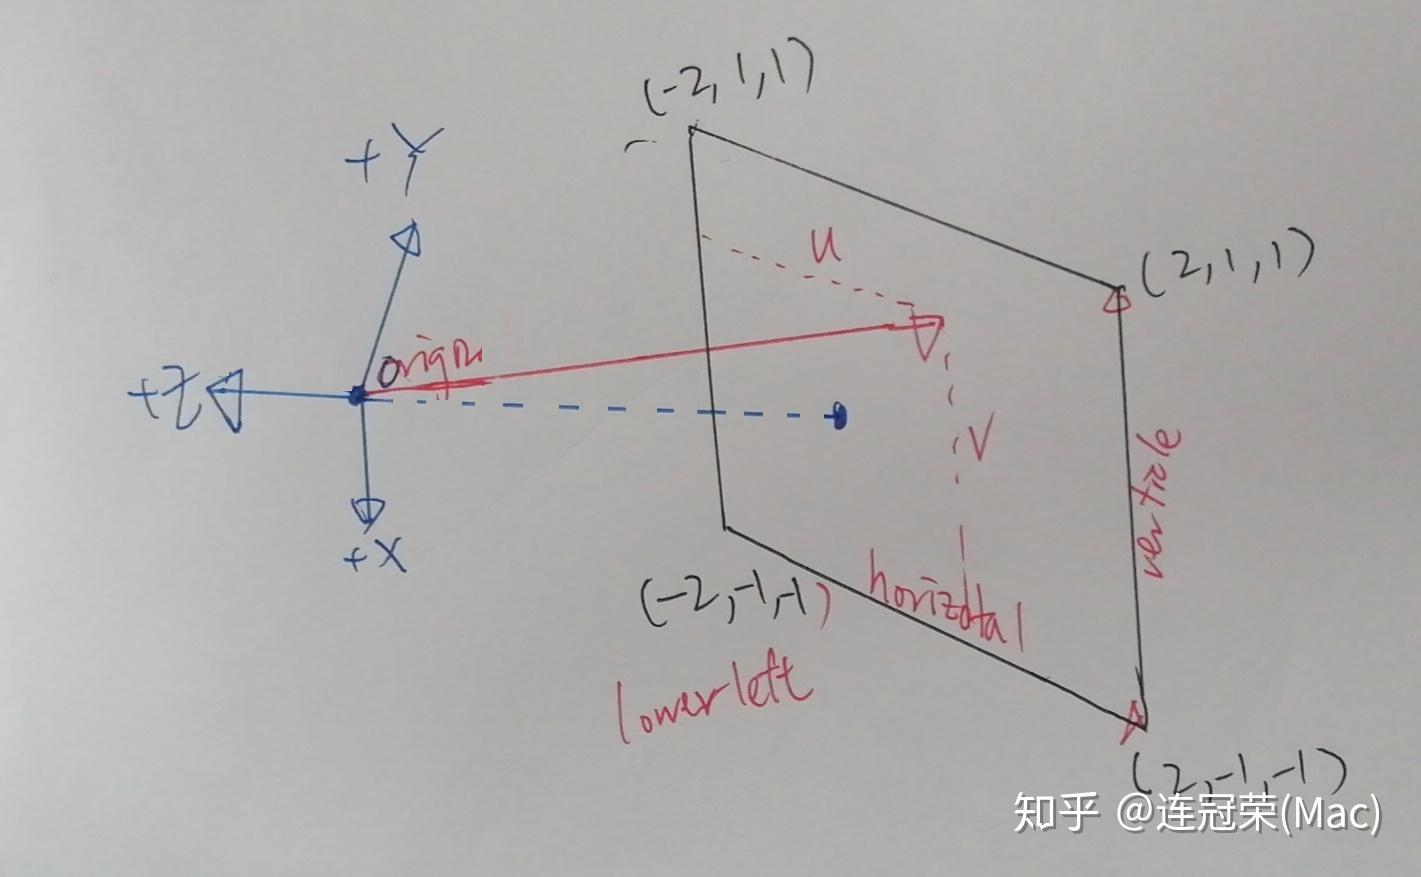 (-2, 1, 1)
+Y
u
(2, 1, 1)
origin
+Z
V
verticle
+X
(-2, -1, -1)
horizotal
lower left
(2, -1, -1)
知乎 @连冠荣(Mac)